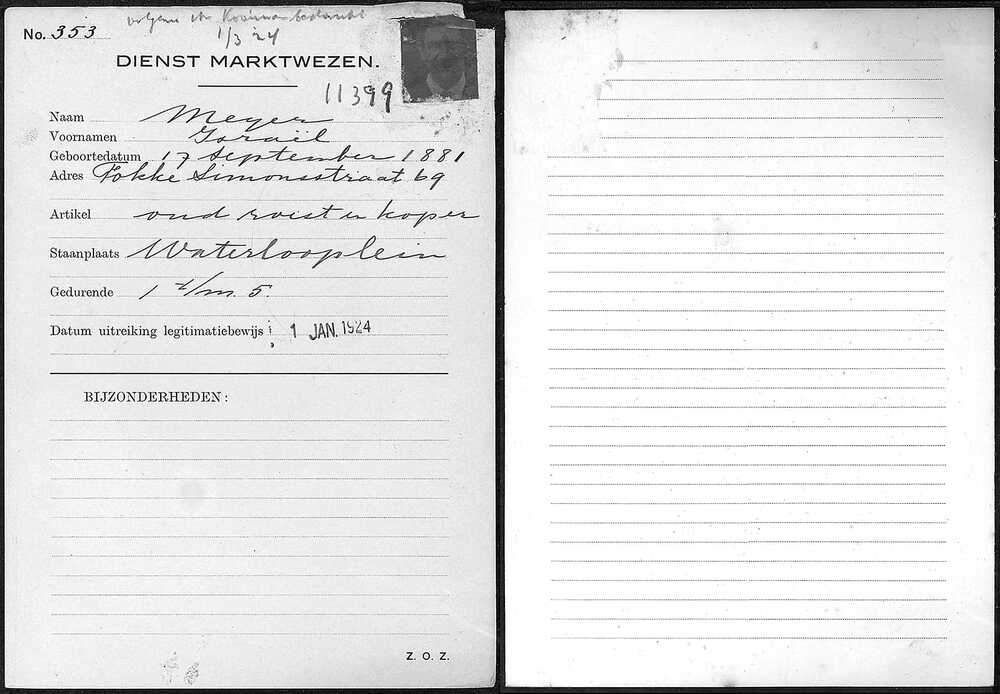 volgens
No. 353
1/3 24
DIENST MARKTWEZEN.
11399
Naam Meyer
Voornamen Israël
Geboortedatum 17 September 1881
Adres Fokke Simonsstraat 69
Artikel oud roest en koper
Staanplaats Waterlooplein
Gedurende 1 t/m. 5.
Datum uitreiking legitimatiebewijs: 1 JAN. 1924
BIJZONDERHEDEN:
Z. O. Z.